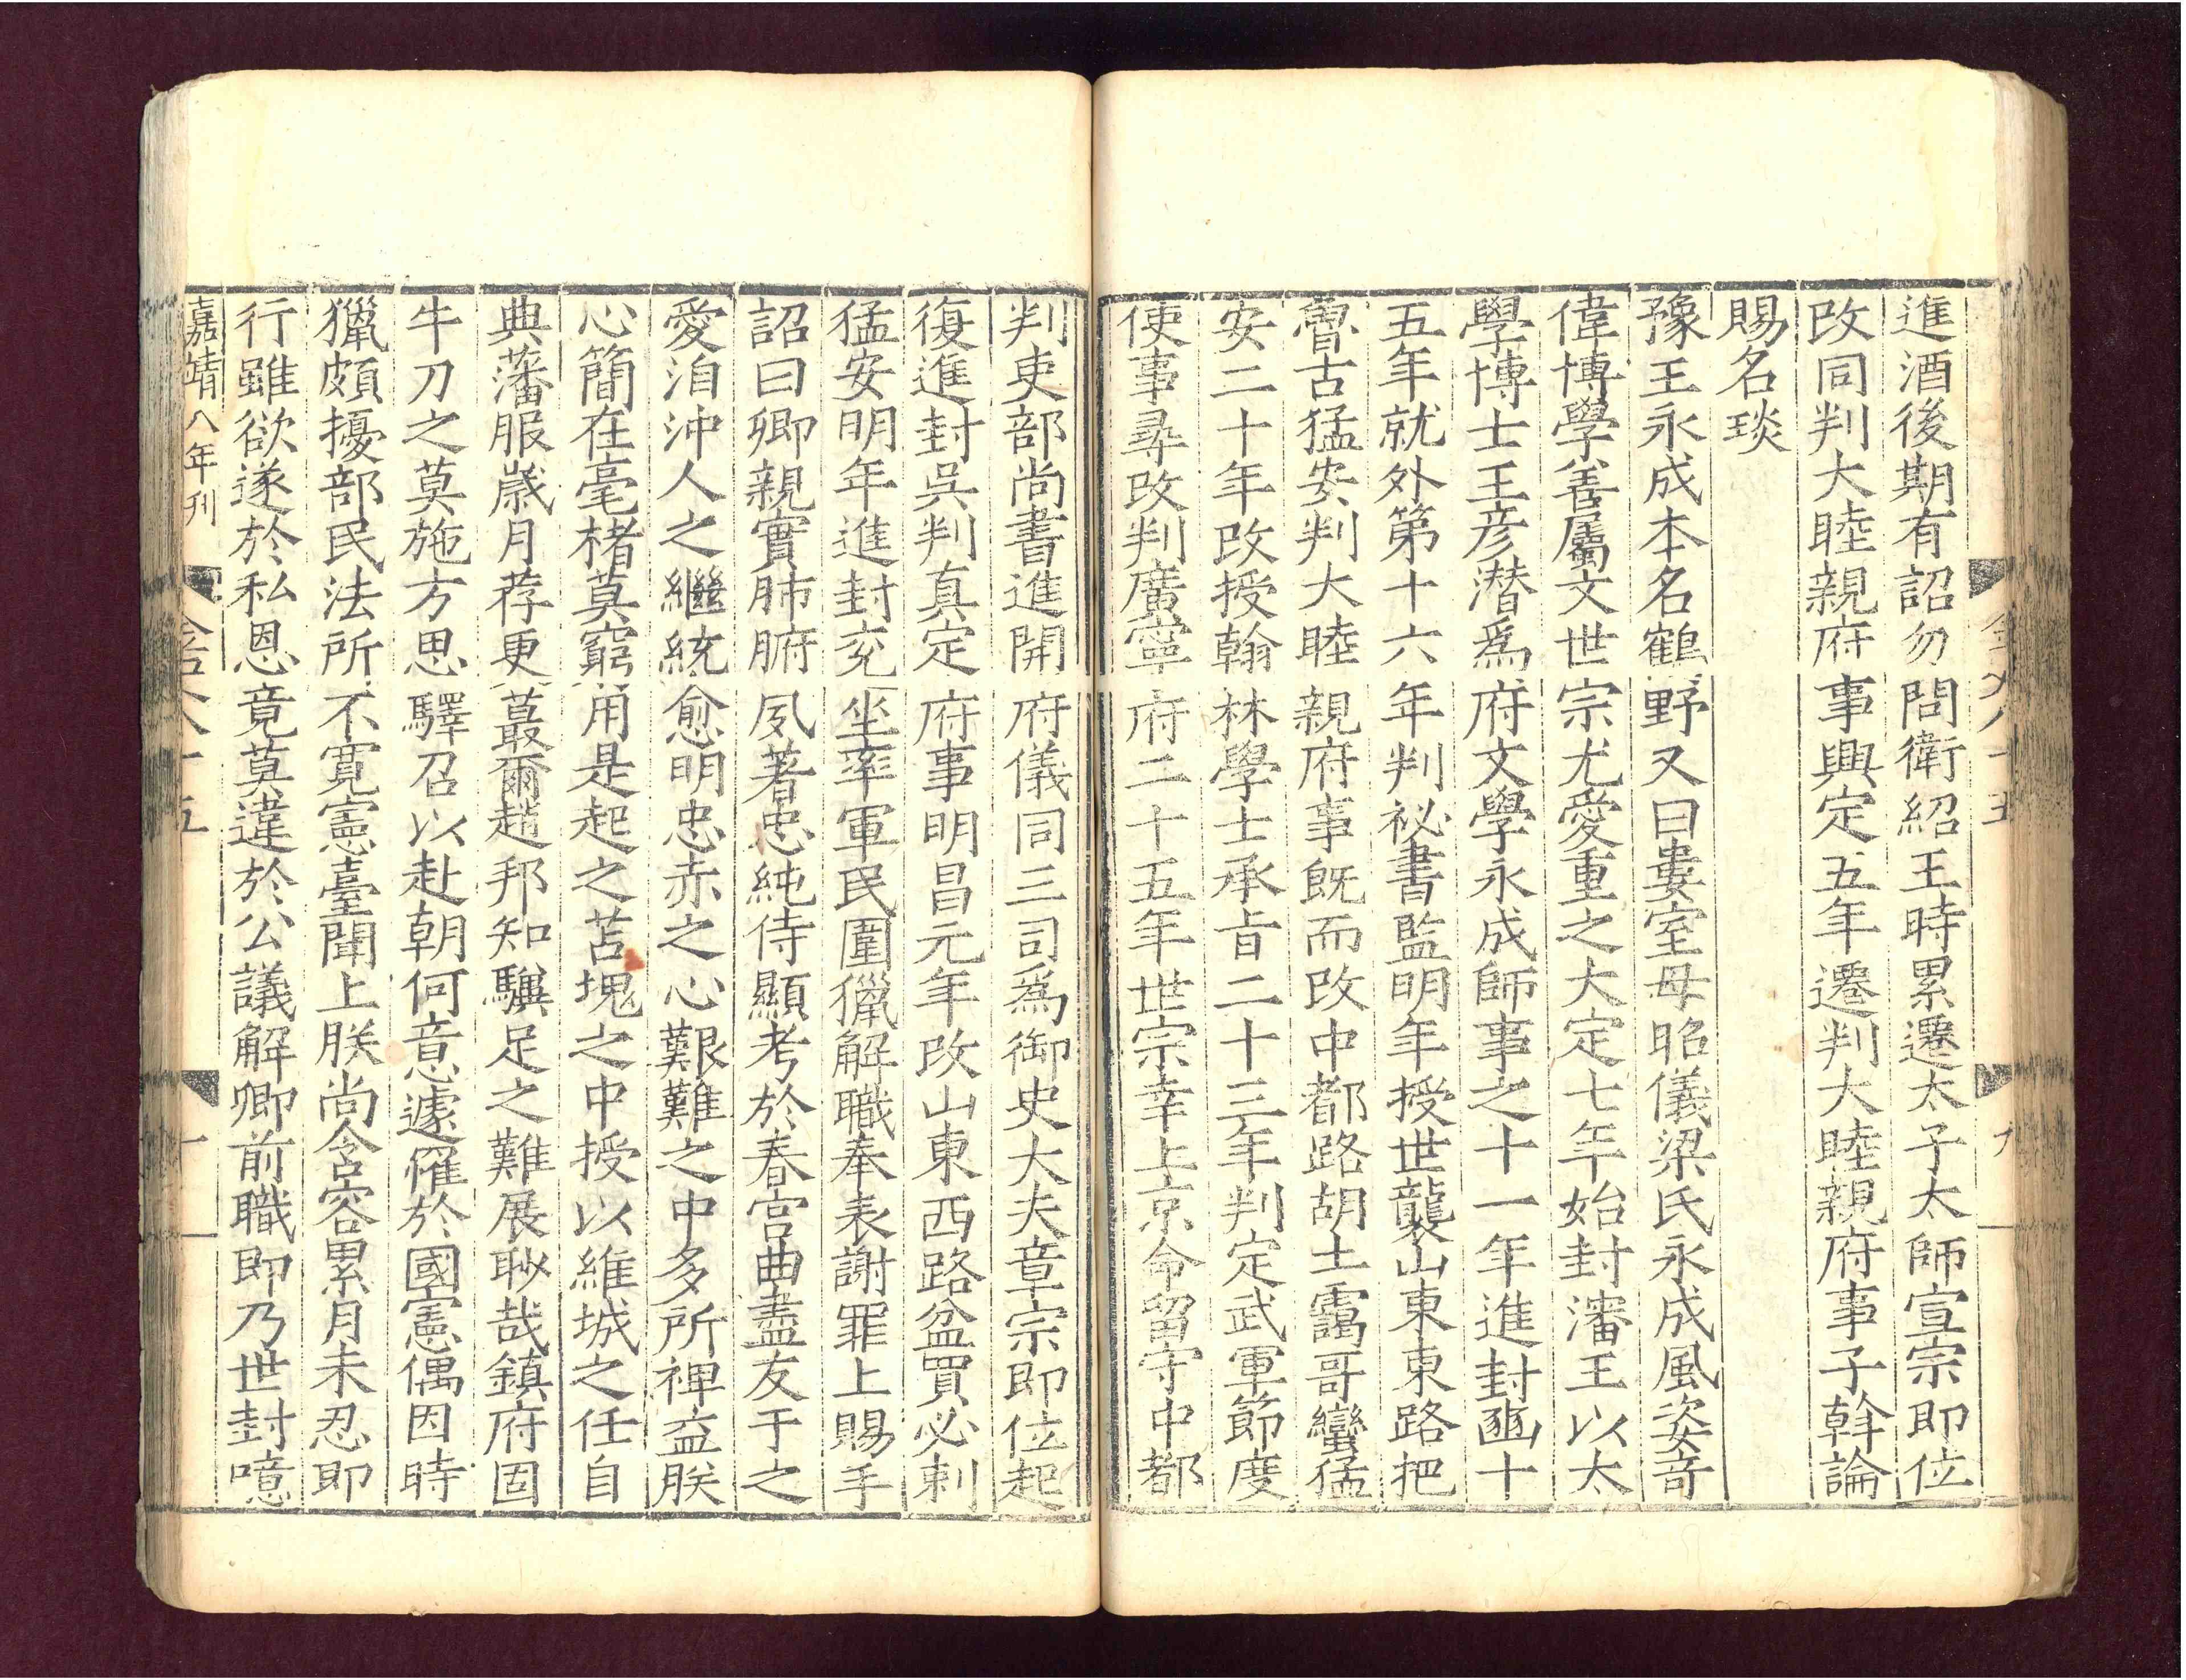 進酒後期有詔勿問衛紹王時累遷太子太師宣宗即位
改同判大睦親府事興定五年遷判大睦親府事子斡論
賜名琰
豫王永成本名鶴野又曰婁室母昭儀梁氏永成風姿竒
偉博學善屬文世宗尤愛重之大定七年始封瀋王以太
學博士王彦潜爲府文學永成師事之十一年進封豳十
五年就外第十六年判祕書監明年授世襲山東東路把
魯古猛安判大睦親府事既而改中都路胡土靄哥蠻猛
安二十年改授翰林學士承旨二十三年判定武軍節度
使事尋改判廣寧府二十五年世宗幸上京命留守中都
判吏部尚書進開府儀同三司爲御史大夫章宗即位起
復進封吳判真定府事明昌元年改山東西路盆買必剌
猛安明年進封兖坐率軍民圍獵解職奉表謝罪上賜手
詔曰卿親實肺腑夙著忠純侍顯考於春宫曲盡友于之
愛洎沖人之繼統愈明忠赤之心艱難之中多所裨益朕
心簡在毫楮莫窮用是起之苫塊之中授以維城之任自
典藩服歲月荐更蕞爾趙邦知驥足之難展眇哉鎮府固
牛刀之莫施方思驛召以赴朝何意遽罹於國憲偶因時
獵頗擾部民法所不寛憲臺聞上朕尚含容累月未忍即
行雖欲遂於私恩竟莫違於公議解卿前職即乃世封噫
嘉靖八年刋